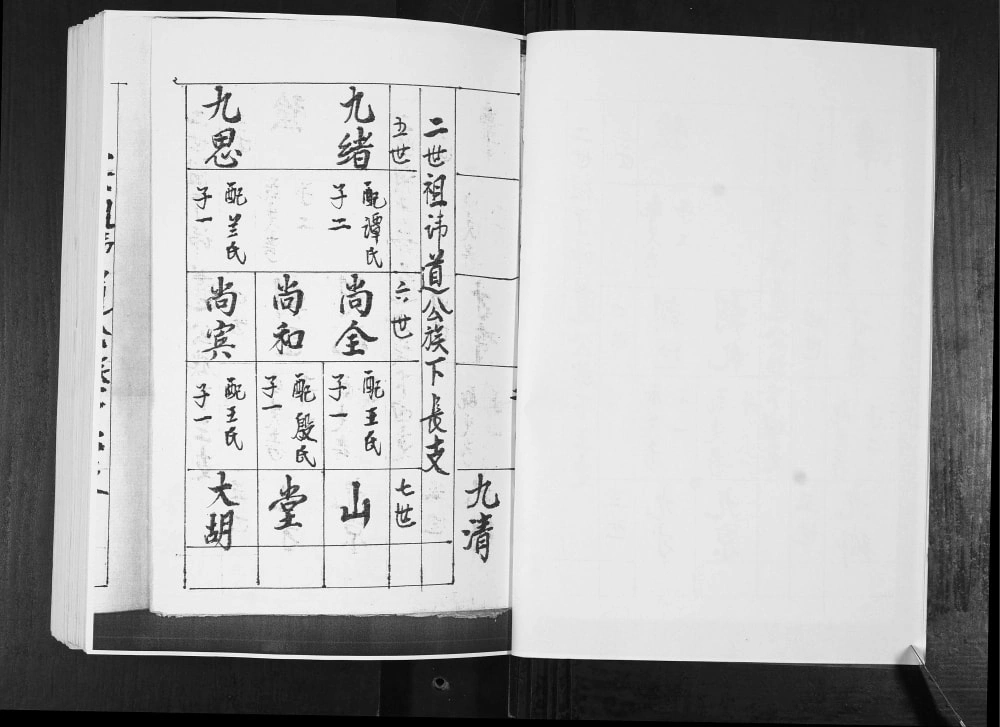 九清
二世祖讳道公族下长支
五世
六世
七世
九绪
配谭氏
子二
尚全
配王氏
子一
山
尚和
配殷氏
子一
堂
九思
配兰氏
子一
尚宾
配王氏
子一
大胡